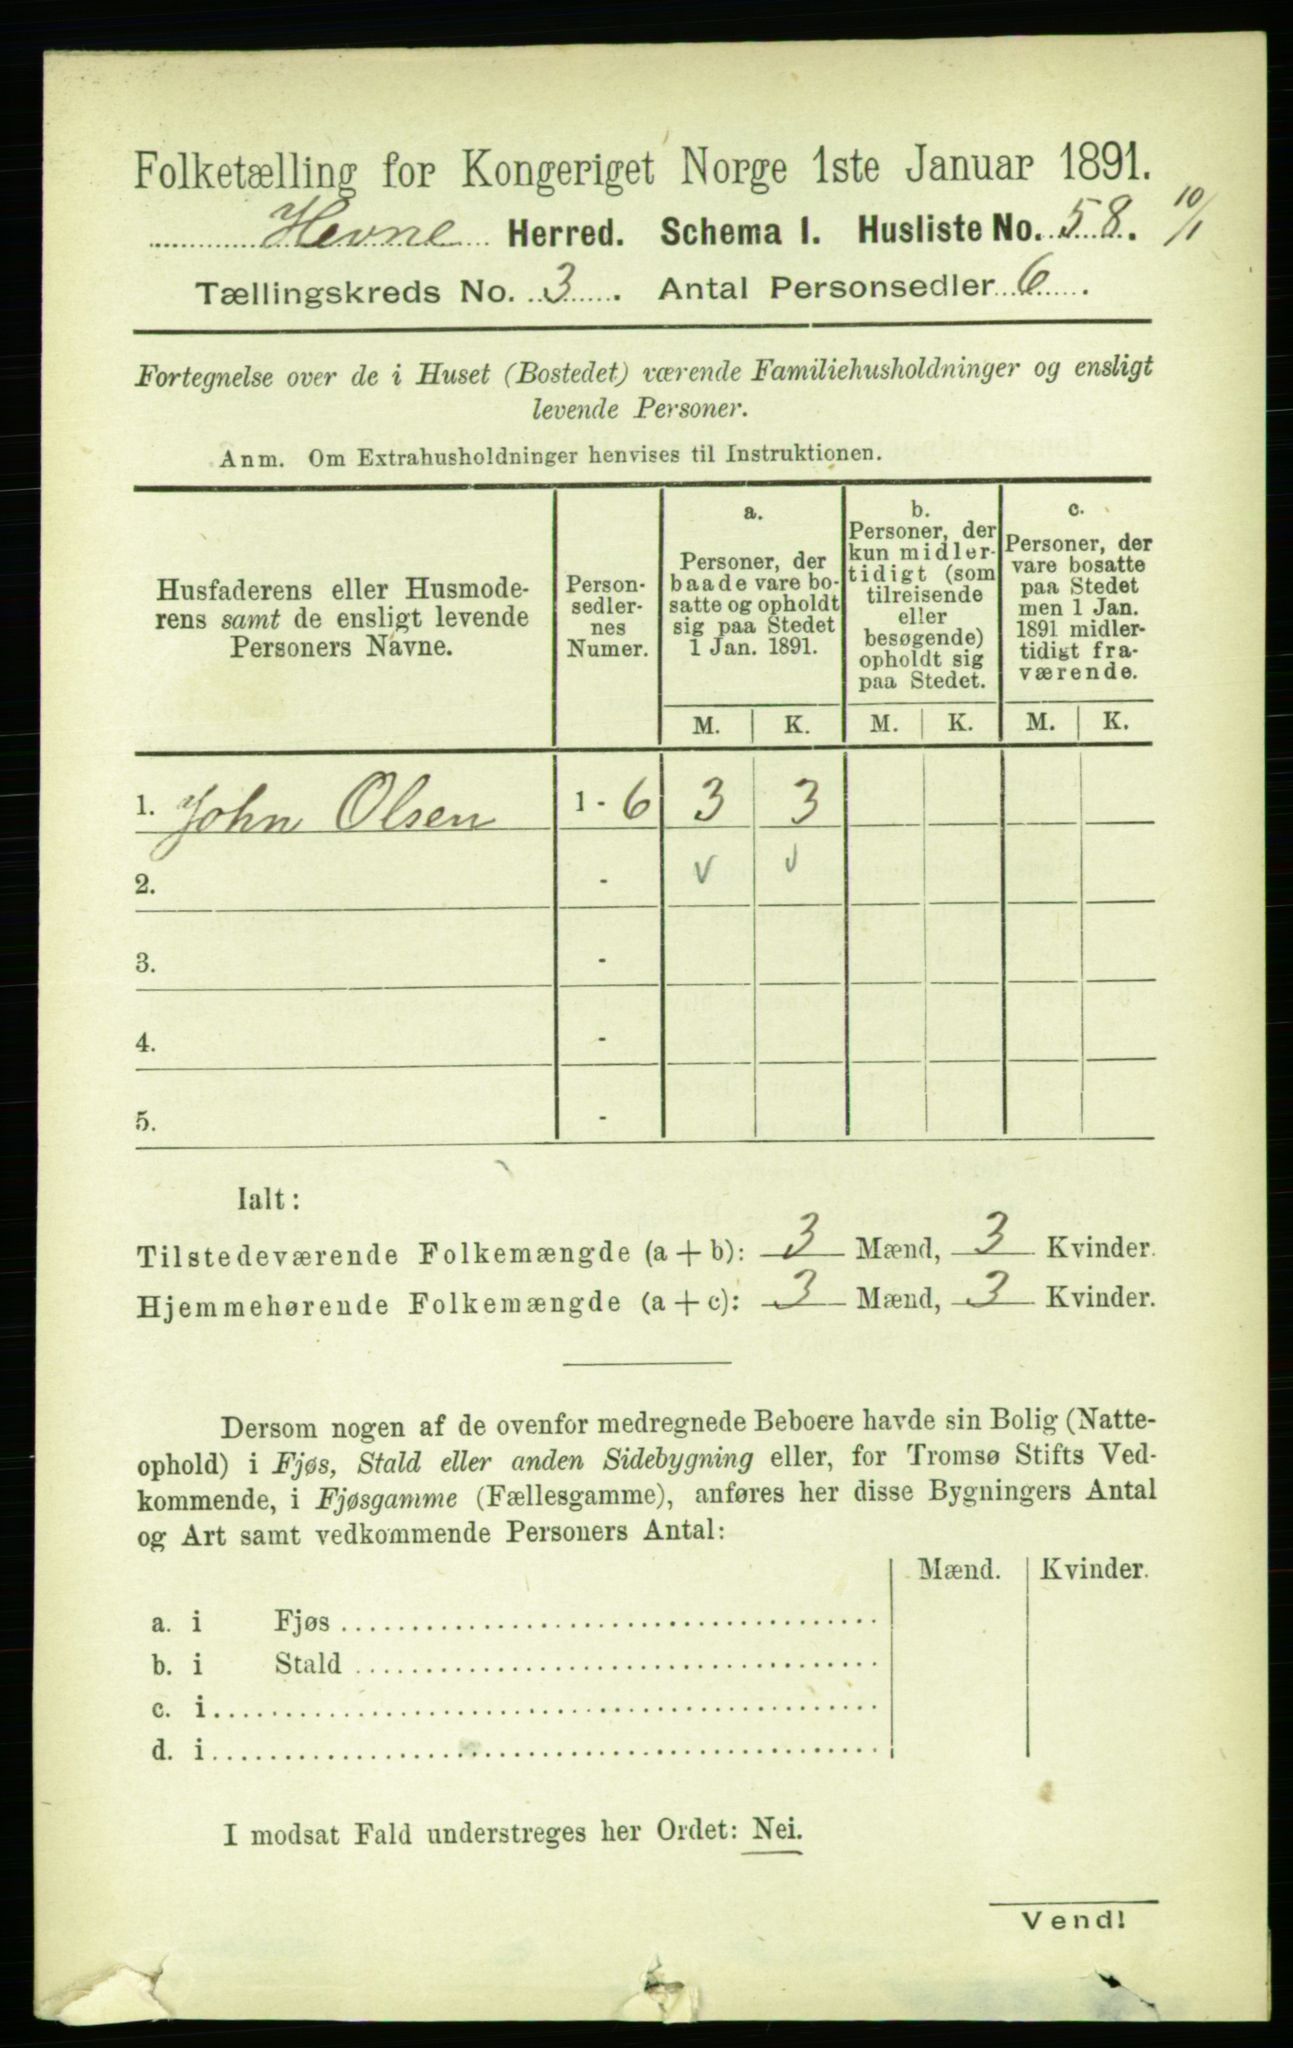 Folketælling for Kongeriget Norge 1ste Januar 1891.
Hevne Herred. Schema I. Husliste No. 58. 10/1
Tællingskreds No. 3. Antal Personsedler 6.
Fortegnelse over de i Huset (Bostedet) værende Familiehusholdninger og ensligt
levende Personer.
Anm. Om Extrahusholdninger henvises til Instruktionen.
Husfaderens eller Husmode-
rens samt de ensligt levende
Personers Navne.
Person-
sedler-
nes
Numer.
a.
Personer, der
baade vare bo-
satte og opholdt
sig paa Stedet
1 Jan. 1891.
b.
Personer, der
kun midler-
tidigt (som
tilreisende
eller
besøgende)
opholdt sig
paa Stedet.
c.
Personer, der
vare bosatte
paa Stedet
men 1 Jan.
1891 midler-
tidigt fra-
værende.
M. K. M. K. M. K.
1. John Olsen 1 - 6 3 3
2. - v v
3. -
4. -
5. -
Ialt:
Tilstedeværende Folkemængde (a + b): 3 Mænd, 3 Kvinder.
Hjemmehørende Folkemængde (a + c): 3 Mænd, 3 Kvinder.
Dersom nogen af de ovenfor medregnede Beboere havde sin Bolig (Natte-
ophold) i Fjøs, Stald eller anden Sidebygning eller, for Tromsø Stifts Ved-
kommende, i Fjøsgamme (Fællesgamme), anføres her disse Bygningers Antal
og Art samt vedkommende Personers Antal:
Mænd. Kvinder.
a. i Fjøs
b. i Stald
c. i
d. i
I modsat Fald understreges her Ordet: Nei.
Vend!